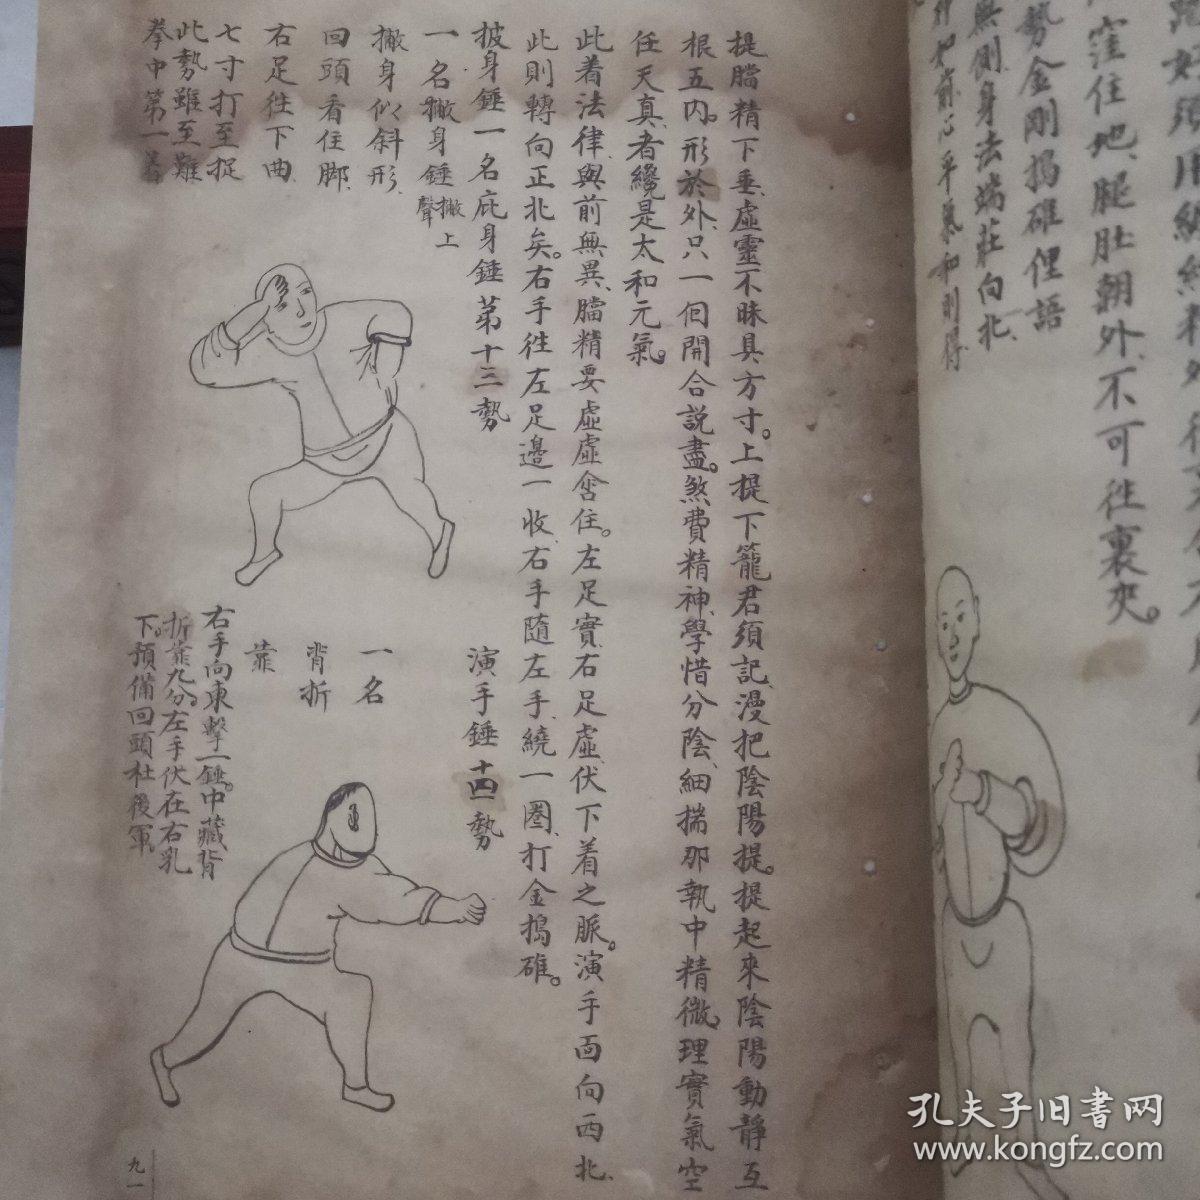 勢金剛搗碓俚語
無側身法端莊向北
窪住地、腿肚朝外、不可往裏夾。
提膽精下垂、虛靈不昧具方寸。上提下籠君須記、漫把陰陽提。提起來陰陽動靜互
根五內。形於外、只一個開合說盡。煞費精神、學惜分陰、細揣那執中精微。理實氣空
任天真、者纔是太和元氣。
此着法律與前無異、膽精要虛虛含住。左足實、右足虛、伏下着之脈。演手面向西北、
此則轉向正北矣。右手往左足邊一收、右手隨左手、繞一圈、打金搗碓。
披身錘一名庇身錘第十三勢
一名撇身錘撇上聲
撇身似斜形、
回頭看住脚、
右足往下曲、
七寸打至捉
此勢雖至難
拳中第一着
演手錘十四勢
一名
背折
靠
右手向東擊一錘。中藏背
折靠九分。左手伏在右乳
下。預備回頭杜後軍
九一
孔夫子旧書网
www.kongfz.com